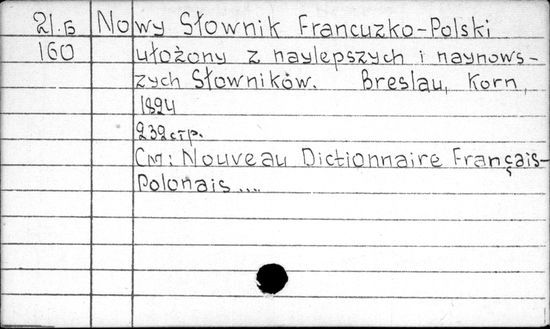 21.Б Nowy Słownik Francuzko-Polski
160 ułożony z naylepszych i naynows-
zych Słowników. Breslau, Korn,
1824
232стр.
См: Nouveau Dictionnaire Français-
Polonais ....